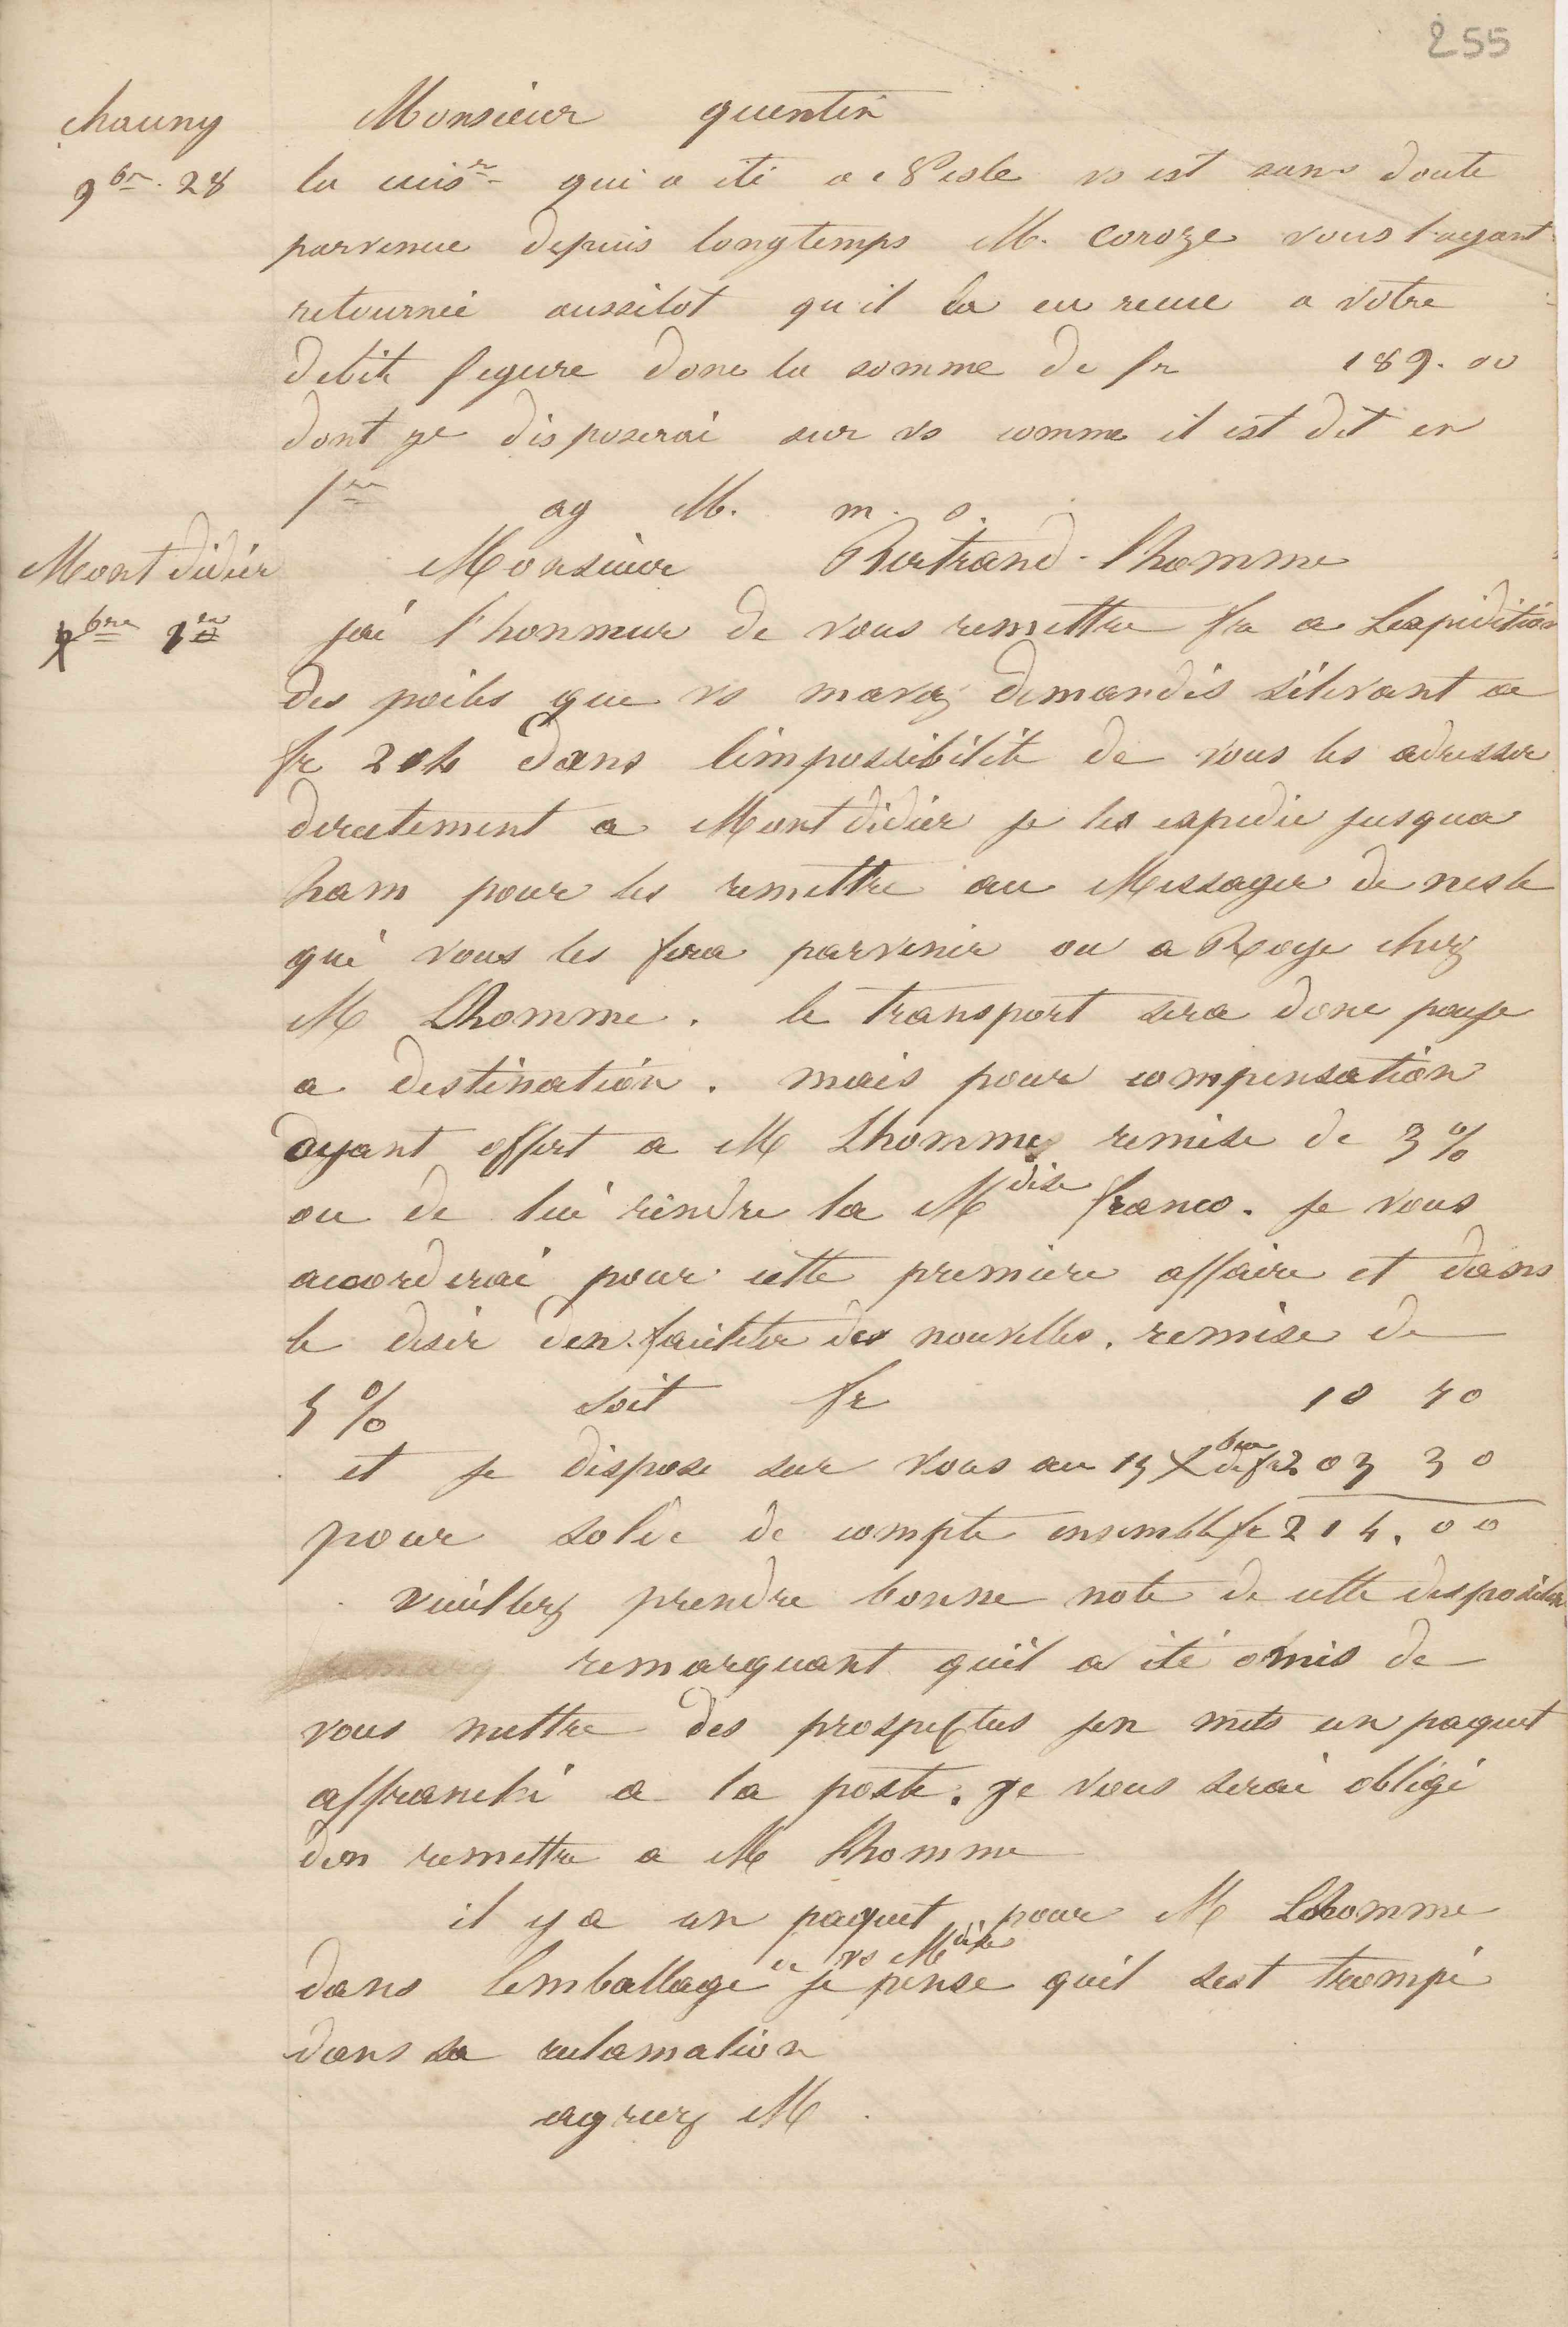 255
chauny
9bre. 28
Monsieur quentin
la cuisre qui a été a Nesle vs est sans doute
parvenue depuis longtemps M. Coroze vous l'ayant
retournée aussitot qu'il la eu recue a votre
debit figure donc la somme de fr 189.00
dont je disposerai sur vs comme il est dit en
fre ag M. m. s.
Mont didier
Xbre 1er
Monsieur Bertrand-lhomme
jai l'honneur de vous remettre fre a Lexpédition
des poiles que vs mavez demandés s'élevant a
fr 214 dans limpossibilité de vous les adresser
directement a Mont didier je les expedie jusqua
ham pour les remettre au Messager de nesle
qui vous les fera parvenir ou a Roye chez
M Lhomme. le transport sera donc paye
a destination. mais pour compensation
ayant offert a M Lhomme remise de 3%
ou de lui rendre la Mdise franco. je vous
accorderai pour cette premiere affaire et dans
le desir den faciliter des nouvelles. remise de
5% soit fr 10 70
et je dispose sur vous au 15 Xbre de fr 203 30
pour solde de compte ensemble fr 214.00
veuillez prendre bonne note de cette disposition
remarquant quil a été omis de
vous mettre des prospectus jen mets un paquet
affranchi a la poste. je vous serai obligé
den remettre a M Lhomme
il y a un paquet pour M Lhomme
dans lemballage de vs Mdise je pense quil sest trompé
dans sa reclamation
agreez M.